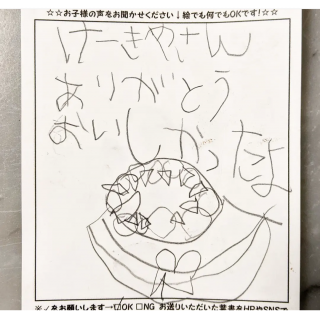 ☆☆お子様の声をお聞かせください↓絵でも何でもOKです！☆☆
けーきやさん
ありがとう
おいしかったよ
※✓をお願いします→□OK □NG お送りいただいた葉書をHPやSNSで